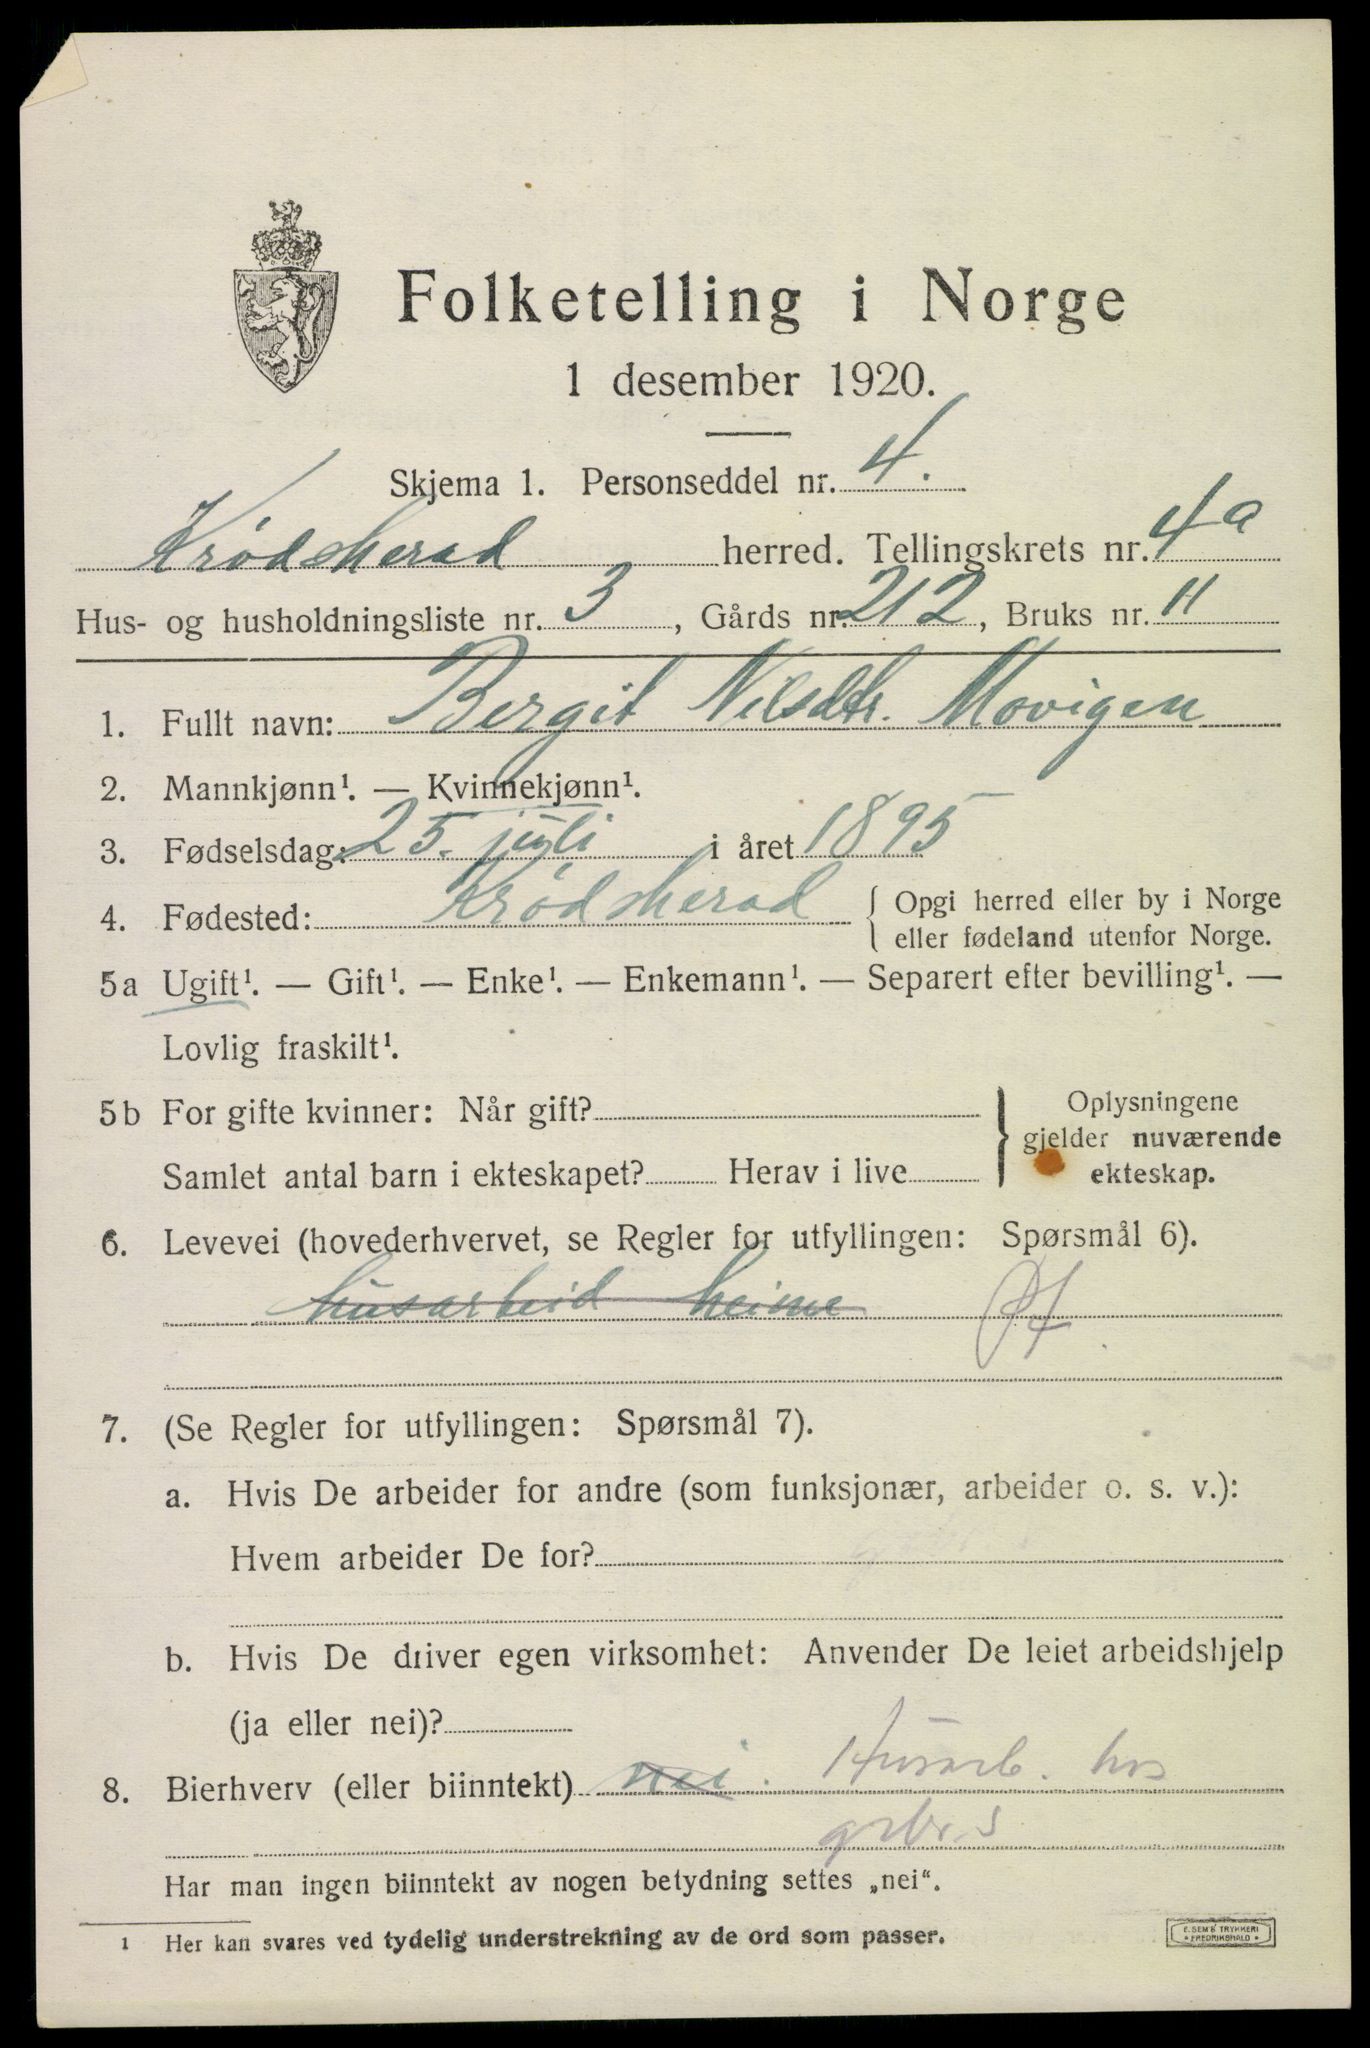 Folketelling i Norge
1 desember 1920.
Skjema 1. Personseddel nr. 4.
Krødsherad herred. Tellingskrets nr. 4a
Hus- og husholdningsliste nr. 3, Gårds nr. 212, Bruks nr. 11
1. Fullt navn: Bergit Nilsdtr. Movigen
2. Mannkjønn¹. — Kvinnekjønn¹.
3. Fødselsdag: 25. juli i året 1895
4. Fødested: Krødsherad { Opgi herred eller by i Norge
eller fødeland utenfor Norge.
5a Ugift¹. — Gift¹. — Enke¹. — Enkemann¹. — Separert efter bevilling¹. —
Lovlig fraskilt¹.
5b For gifte kvinner: Når gift? } Oplysningene
gjelder nuværende
Samlet antal barn i ekteskapet? Herav i live ekteskap.
6. Levevei (hovederhvervet, se Regler for utfyllingen: Spørsmål 6).
husarbeid heime
7. (Se Regler for utfyllingen: Spørsmål 7).
a. Hvis De arbeider for andre (som funksjonær, arbeider o. s. v.):
Hvem arbeider De for?
b. Hvis De driver egen virksomhet: Anvender De leiet arbeidshjelp
(ja eller nei)?
8. Bierhverv (eller biinntekt) nei. Husarb. hos
Har man ingen biinntekt av nogen betydning settes „nei“.
1 Her kan svares ved tydelig understrekning av de ord som passer.
E. SEM'S TRYKKERI
FREDRIKSHALD